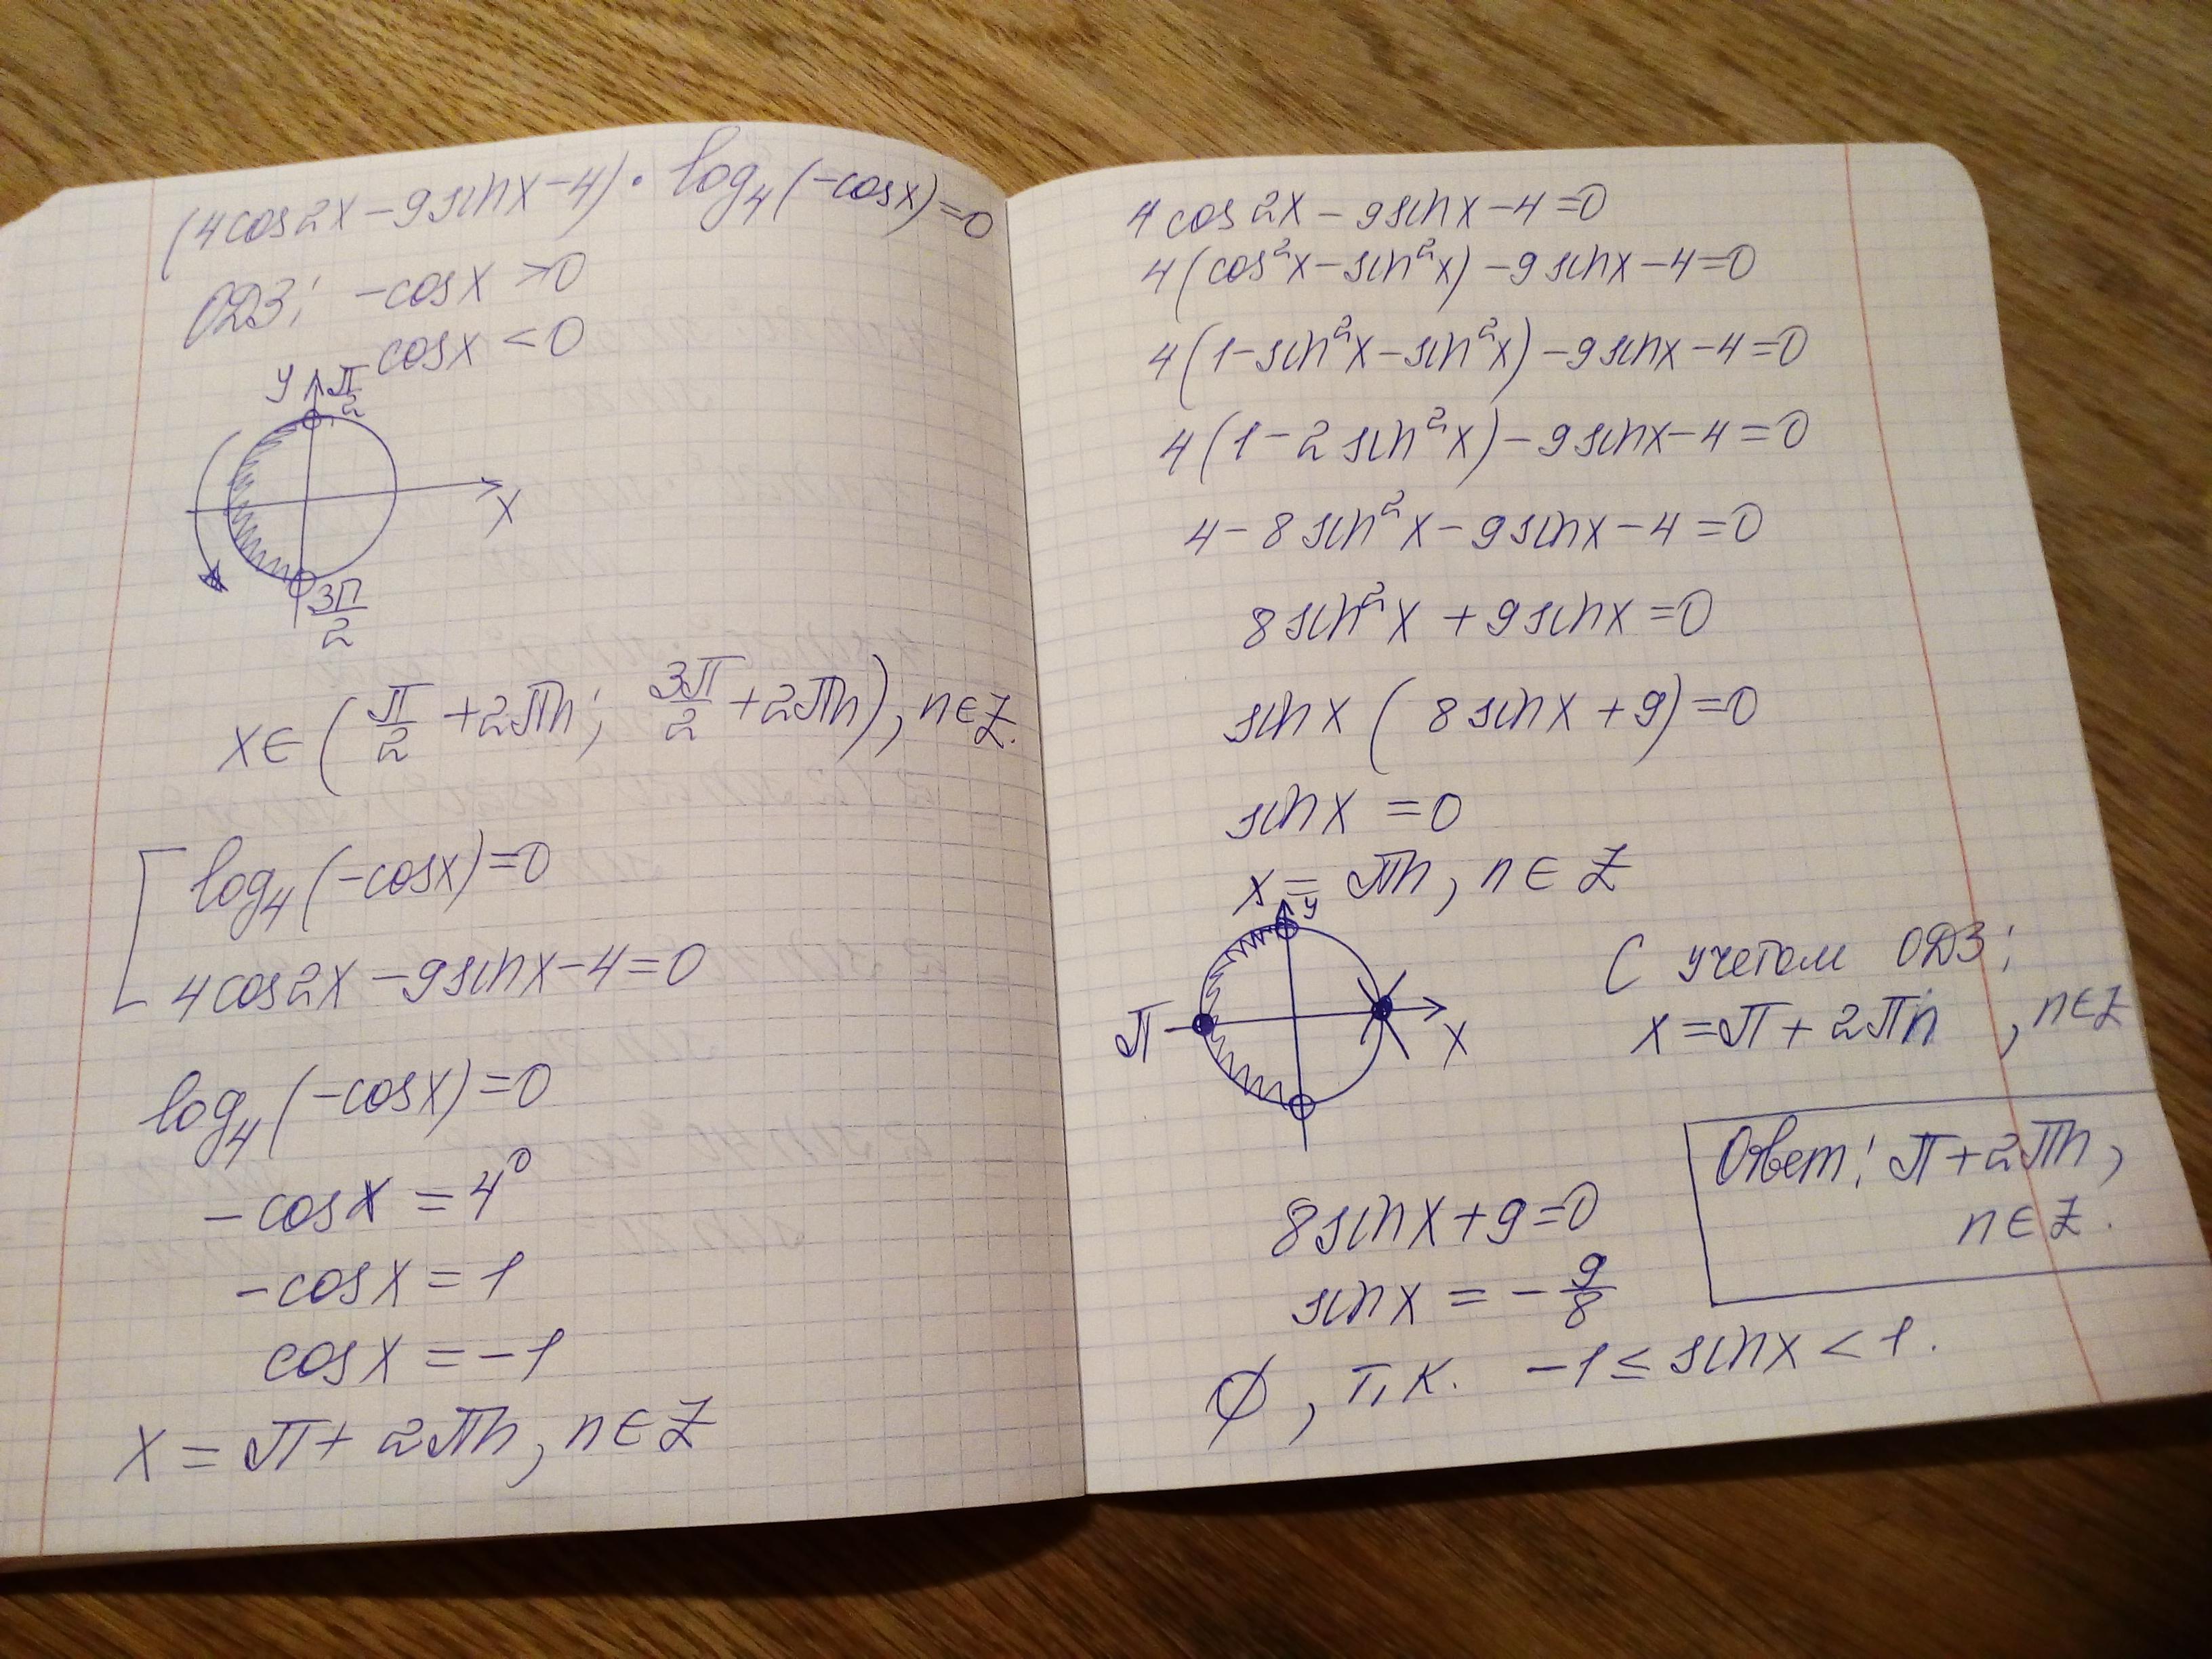 (4cos2x-9sinx-4)·log₄(-cosx)=0
ОДЗ: -cosx>0
cosx<0
y π/2
x
3π/2
x∈(π/2+2πn; 3π/2+2πn), n∈Z.
log₄(-cosx)=0
4cos2x-9sinx-4=0
log₄(-cosx)=0
-cosx=4⁰
-cosx=1
cosx=-1
x=π+2πn, n∈Z
4cos2x-9sinx-4=0
4(cos²x-sin²x)-9sinx-4=0
4(1-sin²x-sin²x)-9sinx-4=0
4(1-2sin²x)-9sinx-4=0
4-8sin²x-9sinx-4=0
8sin²x+9sinx=0
sinx(8sinx+9)=0
sinx=0
x=πn, n∈Z
y
π x
С учетом ОДЗ:
x=π+2πn, n∈Z
8sinx+9=0
sinx=-9/8
∅, т.к. -1≤sinx<1.
Ответ: π+2πn,
n∈Z.